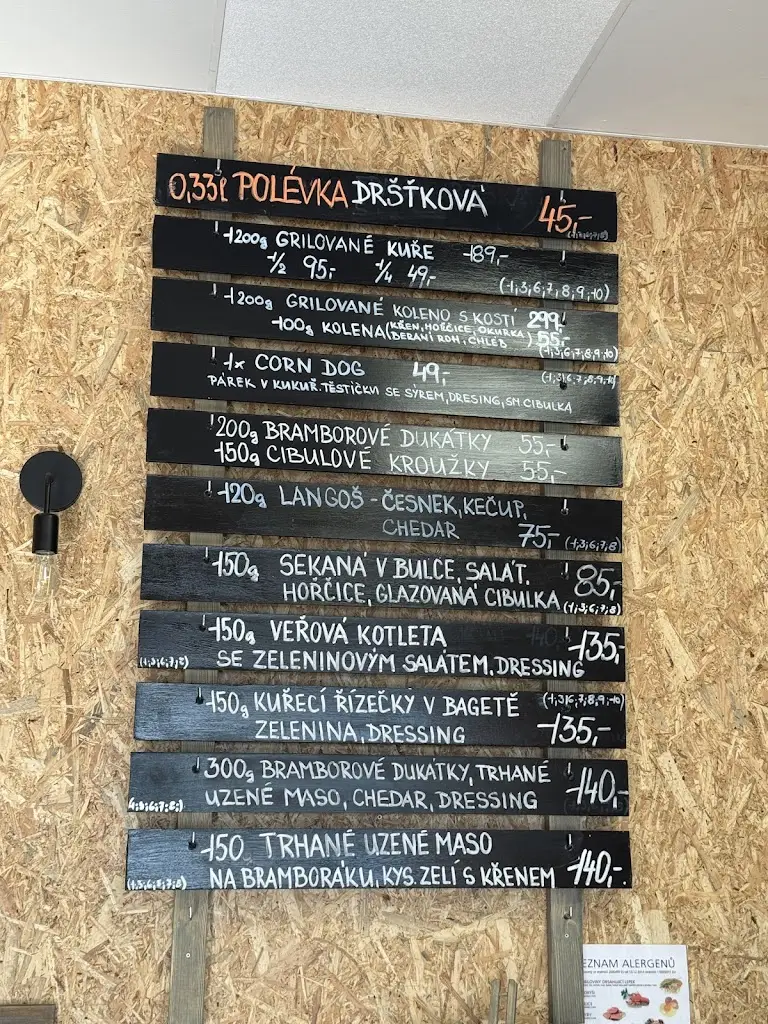 0,33l POLÉVKA DRŠŤKOVÁ 45,-
1200g GRILOVANÉ KUŘE 189,-
1/2 95,- 1/4 49,- (1,3,6,7,8,9,10)
1200g GRILOVANÉ KOLENO S KOSTÍ 299,-
100g KOLENA (KŘEN, HOŘČICE, OKURKA 55,-
BERANÍ ROH, CHLÉB)
(1,3,6,7,8,9,10)
1x CORN DOG 49,- (1,3,6,7,8,9,10)
PÁREK V KUKUŘ. TĚSTÍČKU SE SÝREM, DRESING, SM CIBULKA
200g BRAMBOROVÉ DUKÁTKY 55,-
150g CIBULOVÉ KROUŽKY 55,-
120g LANGOŠ - ČESNEK, KEČUP,
CHEDAR 75,- (1,3,6,7,8)
150g SEKANÁ V BULCE, SALÁT, 85,-
HOŘČICE, GLAZOVANÁ CIBULKA (1,3,6,7,8)
150g VEŘOVÁ KOTLETA 135,-
SE ZELENINOVÝM SALÁTEM, DRESSING
150g KUŘECÍ ŘÍZEČKY V BAGETĚ (1,3,6,7,8,9,10)
ZELENINA, DRESSING 135,-
300g BRAMBOROVÉ DUKÁTKY, TRHANÉ
UZENÉ MASO, CHEDAR, DRESSING 140,-
150 TRHANÉ UZENÉ MASO
NA BRAMBORÁKU, KYS. ZELÍ S KŘENEM 140,-
EZNAM ALERGENŮ